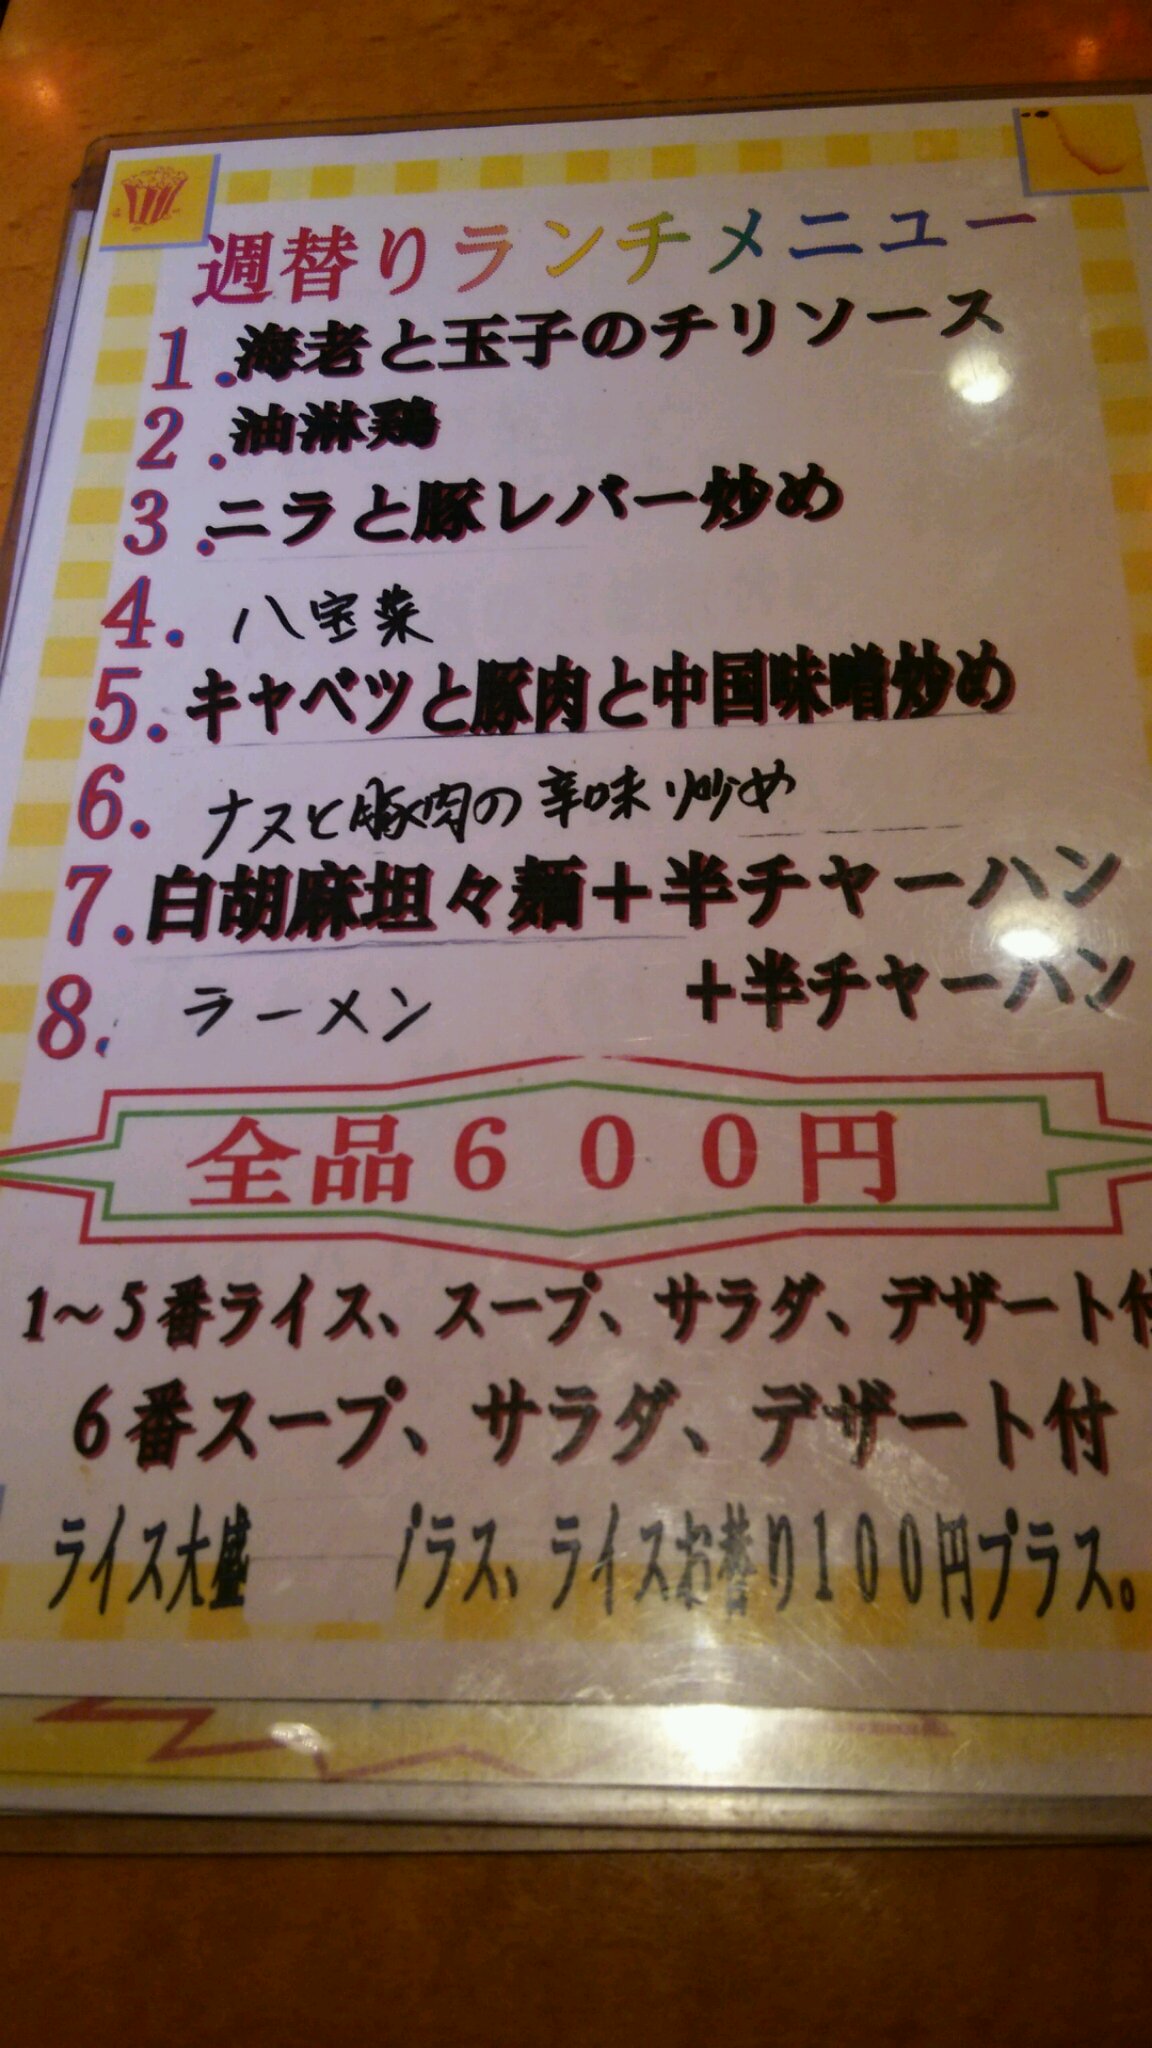 週替りランチメニュー
1.海老と玉子のチリソース
2.油淋鶏
3.ニラと豚レバー炒め
4.八宝菜
5.キャベツと豚肉と中国味噌炒め
6.ナスと豚肉の辛味炒め
7.白胡麻坦々麺＋半チャーハン
8.ラーメン ＋半チャーハン
全品６００円
1～5番ライス、スープ、サラダ、デザート付
6番スープ、サラダ、デザート付
ライス大盛 プラス、ライスお替り１００円プラス。